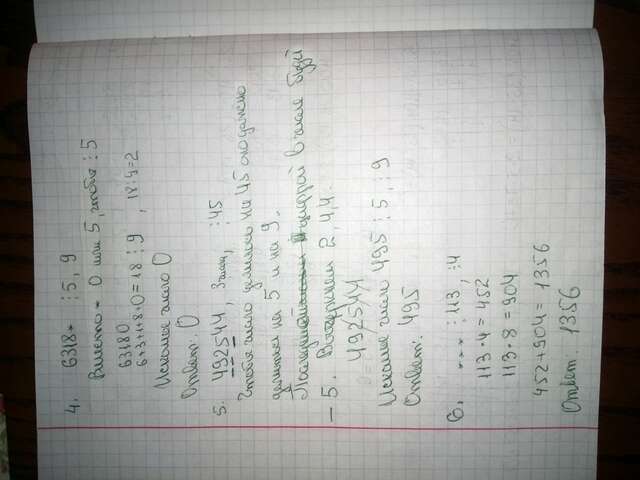 4. 6318* ⋮ 5, 9
Вместо * 0 или 5, чтобы ⋮ 5
63180
6+3+1+8+0=18 ⋮ 9, 18:9=2
Искомое число 0
Ответ: 0
5. 492544, ⋮ 45
Чтобы число делилось на 45 оно должно
делиться на 5 и на 9.
цифрой в числе будет
– 5. Вычеркнем 2, 4, 4.
492544
Искомое число 495 ⋮ 5, ⋮ 9
Ответ: 495
6. *** ⋮ 113, ⋮ 4
113·4=452
113·8=904
452+904=1356
Ответ: 1356